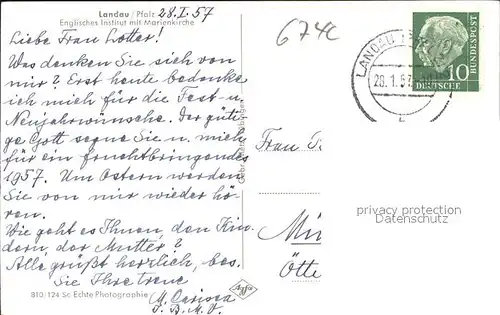 Landau / Pfalz 28.I.57
Englisches Institut mit Marienkirche
Liebe Frau Lotter!
Was denken Sie sich von
mir? Erst heute bedanke
ich mich für die Fest- u.
Neujahrwünsche. Der güti-
ge Gott segne Sie u. mich
für ein fruchtbringendes
1957. Um Ostern werden
Sie von mir wieder hö-
ren.
Wie geht es Ihnen, den Kin-
dern, der Mutter?
Alle grüßt herzlich, bes.
Sie Ihre treue
M. Carissa
I. B. M. V.
810/124 Sr. Echte Photographie
Agfa
674c
LANDAU
28.1.57
10
DEUTSCHE
BUNDESPOST
Frau
privacy protection
Datenschutz